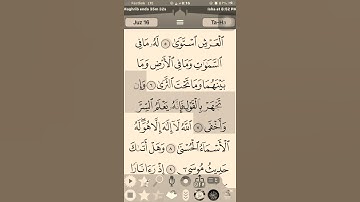 Maghrib ends 35m 32s
Isha at 8:52 PM
Juz 16
Ta-Ha
ٱلْعَرْشِ ٱسْتَوَىٰ ۝٥ لَهُۥ مَا فِى
ٱلسَّمَٰوَٰتِ وَمَا فِى ٱلْأَرْضِ وَمَا
بَيْنَهُمَا وَمَا تَحْتَ ٱلثَّرَىٰ ۝٦ وَإِن
تَجْهَرْ بِٱلْقَوْلِ فَإِنَّهُۥ يَعْلَمُ ٱلسِّرَّ
وَأَخْفَى ۝٧ ٱللَّهُ لَآ إِلَٰهَ إِلَّا هُوَ لَهُ
ٱلْأَسْمَآءُ ٱلْحُسْنَىٰ ۝٨ وَهَلْ أَتَىٰكَ
حَدِيثُ مُوسَىٰٓ ۝٩ إِذْ رَءَا نَارًا